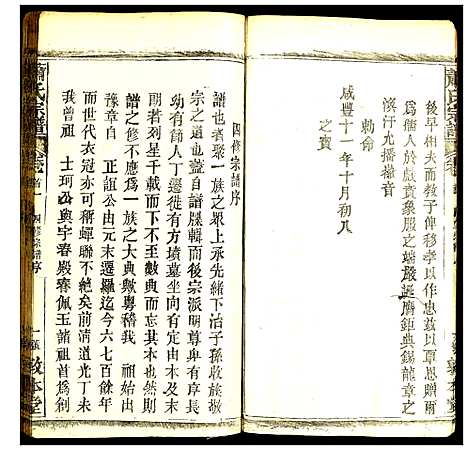 後早相夫而教子俾移孝以作忠茲以覃恩贈爾
為儒人於戲賁象服之端嚴誕膺鉅典錫龍章之
渙汗允播徽音
勅命
咸豐十一年十月初八
之寶
四修宗譜序
譜也者聚一族之眾上承先緒下治子孫收族敬
宗之道也蓋自譜牒輯而後宗派明尊卑有序長
幼有分人丁遷徙有方墳墓坐向有定由本及支
朗若列星千載而下不至數典而忘祖焉信乎宗
譜之修不應為一族之大典歟粤稽我 祖始出
豫章自 正誼公由元末遷羅迄今六七百餘年
而世代衣冠亦可稱蟬聯不絶矣前淸道光丁未
我曾祖 士珂公與宇春殿春佩玉諸祖首為創
蕭氏宗譜
卷首
四修宗譜序
一
敦本堂